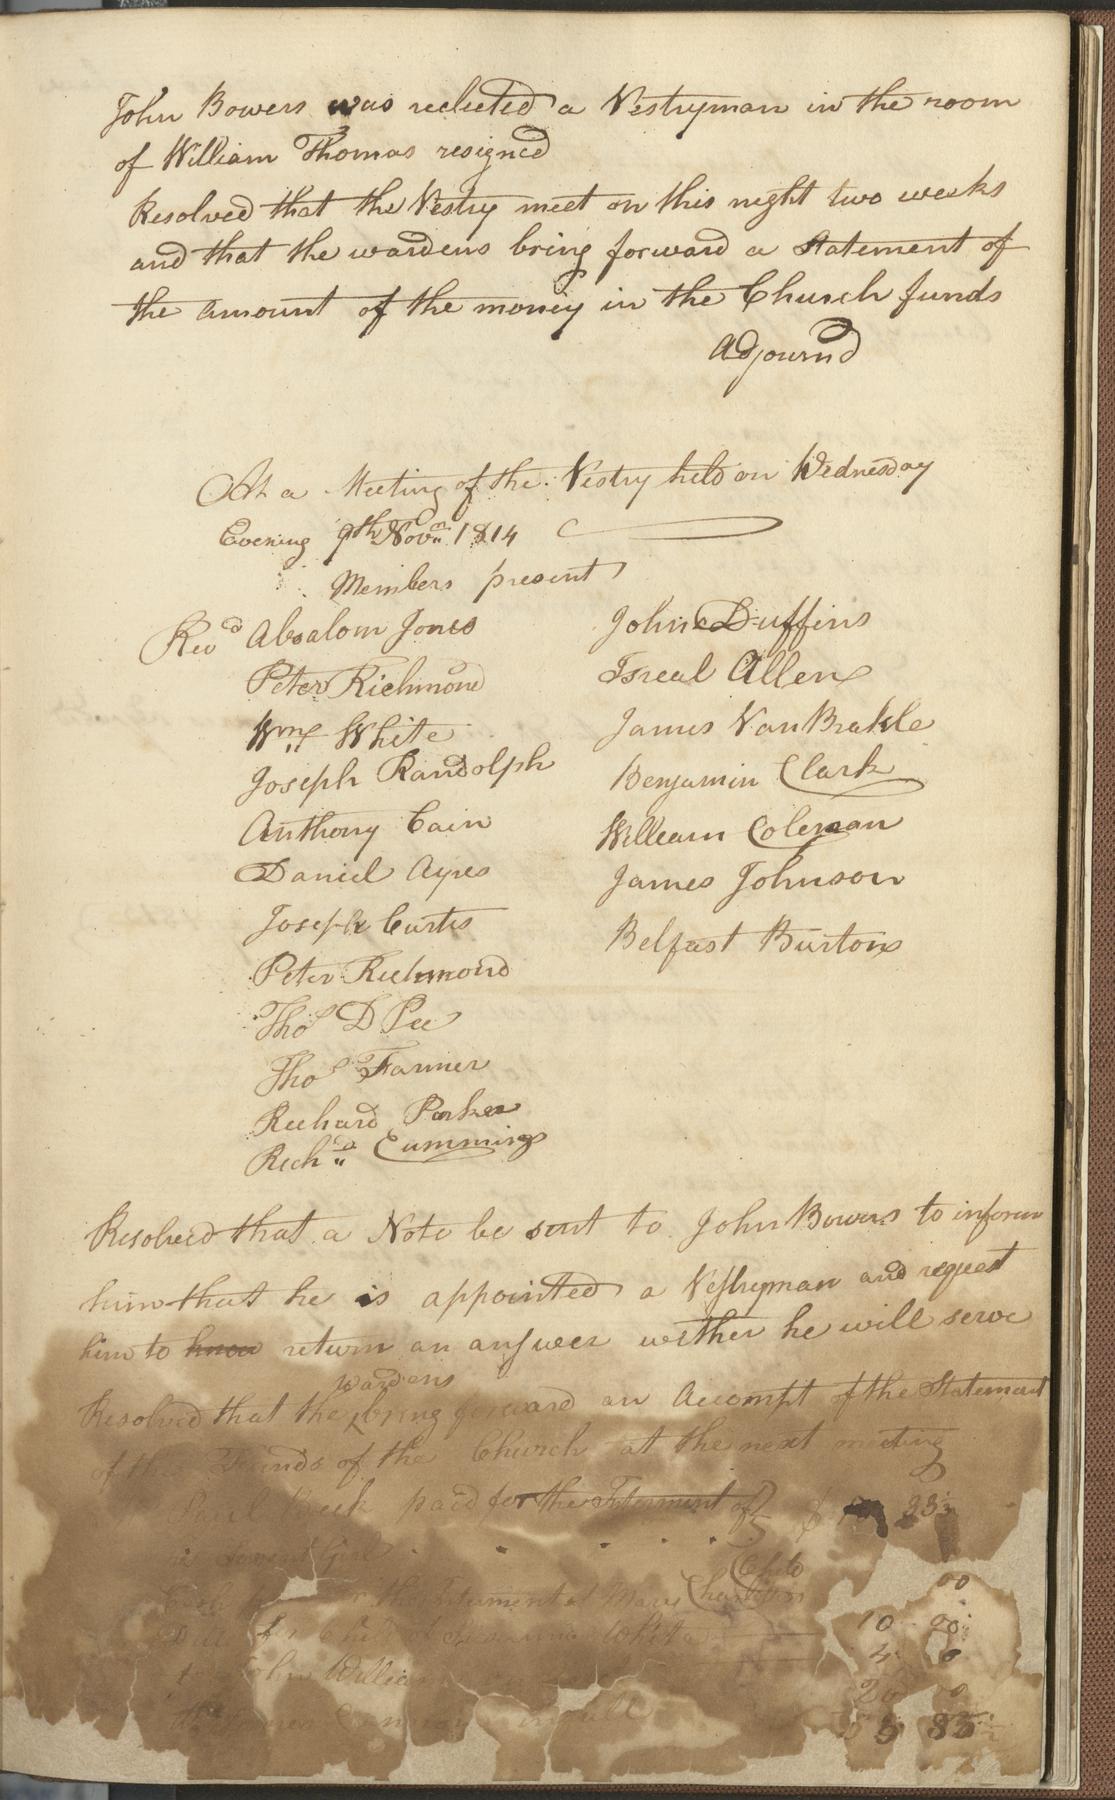 John Bowers was reelected a Vestryman in the room
of William Thomas resigned
Resolved that the Vestry meet on this night two weeks
and that the wardens bring forward a Statement of
the amount of the money in the Church funds
Adjournd
At a Meeting of the Vestry held on Wednesday
Evening 9th Novm 1814
Members present
Revd Absalom Jones
Peter Richmond
Wm White
Joseph Randolph
Anthony Cain
Daniel Ayres
Joseph Curtis
Peter Richmond
Thos D Pee
Thos Farmer
Richard Parker
Richd Cummings
John Duffins
Isreal Allen
James VanBrakle
Benjamin Clark
William Coleman
James Johnson
Belfast Burton
Resolved that a Note be sent to John Bowers to inform
him that he is appointed a Vestryman and request
him to know return an answer wether he will serve
wardens
Resolved that the bring forward an Accompt of the Statement
of the Funds of the Church at the next meeting
Paul Beck paid for the Interment of $ 33
Servent Girl
Child
the Interment of Mary 00
Child White 10 00
John William 4 0
20 00
in full 83